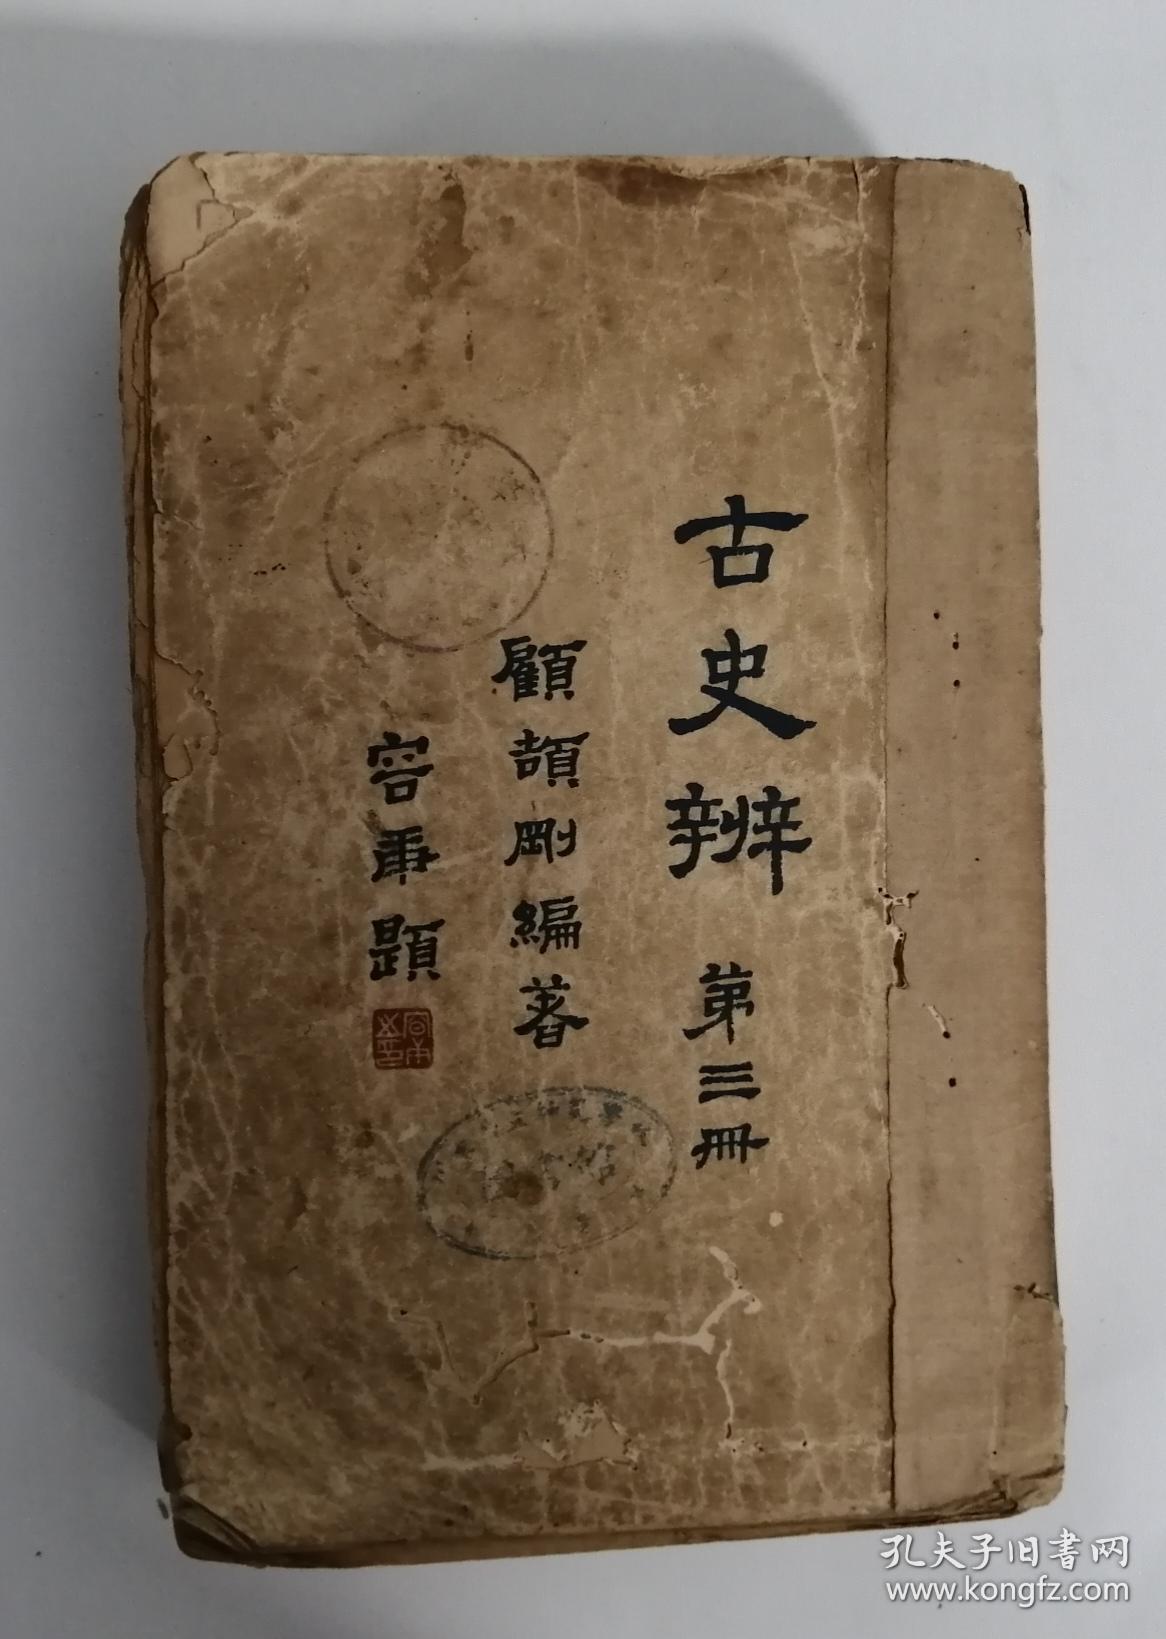 古史辨 第三冊
顧頡剛編著
容庚題
孔夫子旧書网
www.kongfz.com